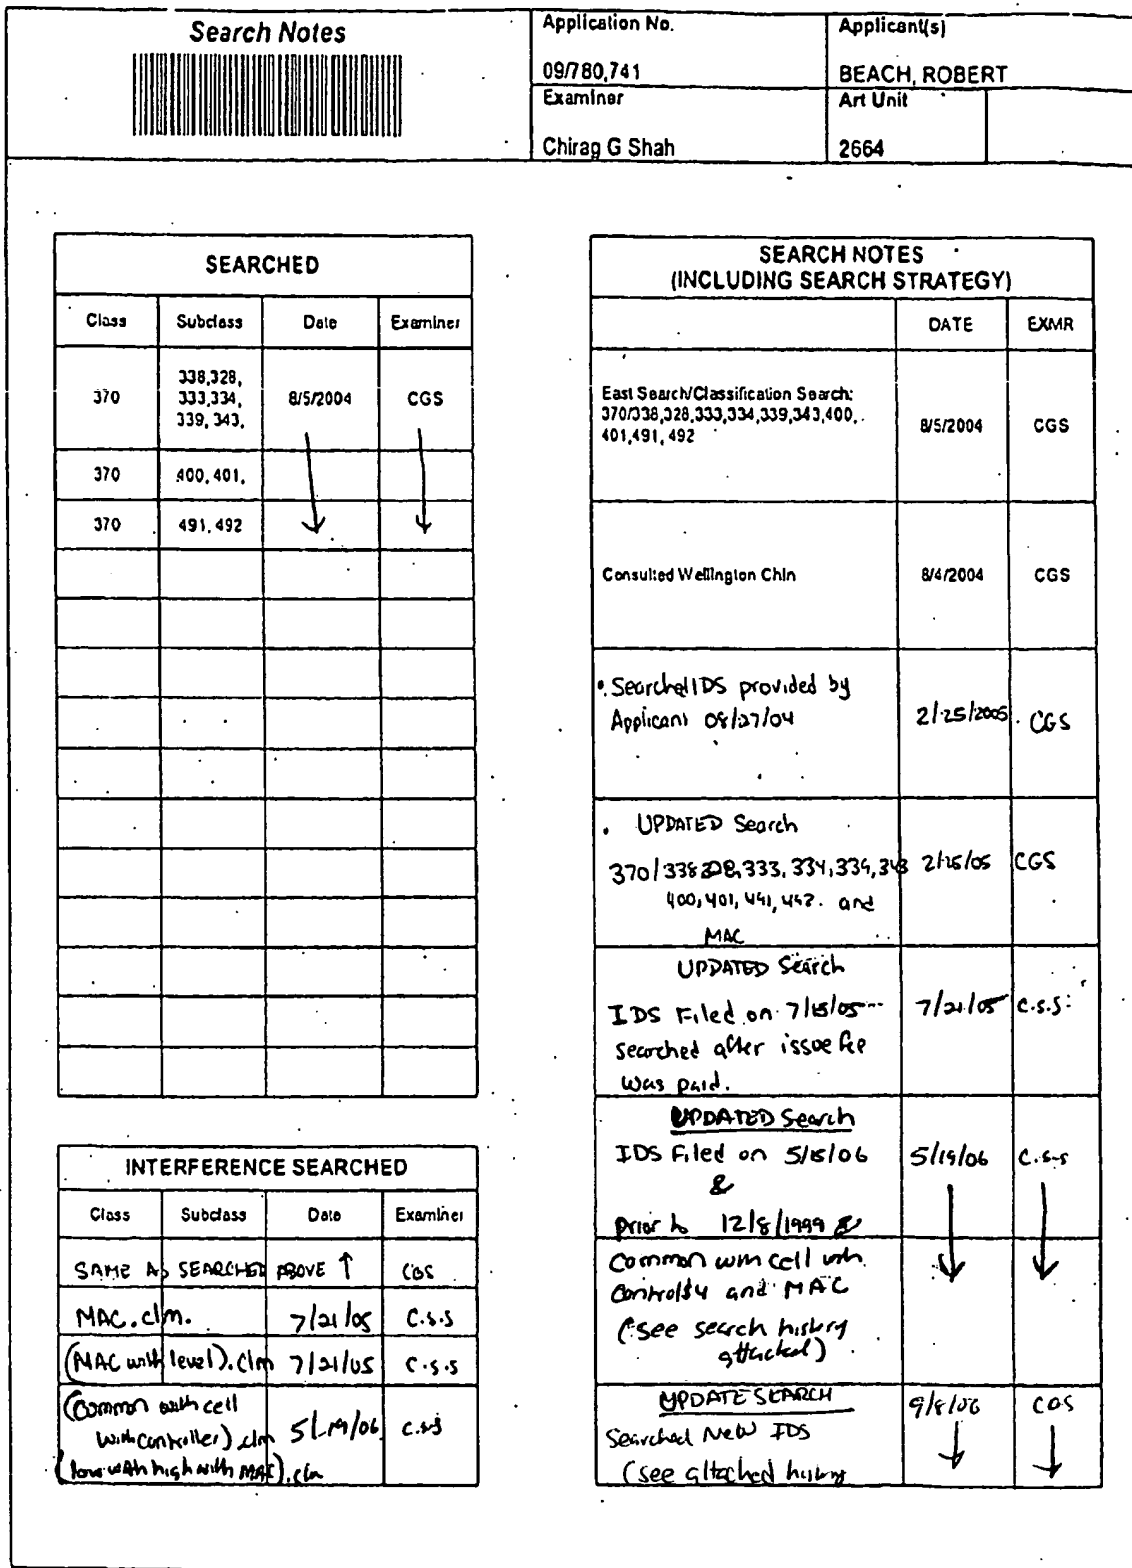 Search Notes
Application No.
09/780,741
Applicant(s)
BEACH, ROBERT
Examiner
Chirag G Shah
Art Unit
2664
SEARCHED
Class Subclass Date Examiner
370 338,328, 333,334, 339, 343, 8/5/2004 CGS
370 400, 401,
370 491, 492
INTERFERENCE SEARCHED
Class Subclass Date Examiner
SAME AS SEARCHED ABOVE ↑ CGS
MAC.clm. 7/21/05 C.S.S
(MAC with level).clm 7/21/05 C.S.S
(Common with cell
with controller).clm 5/19/06 C.S.S
(low with high with MAC).clm
SEARCH NOTES
(INCLUDING SEARCH STRATEGY)
DATE EXMR
East Search/Classification Search:
370/338,328,333,334,339,343,400,
401,491, 492 8/5/2004 CGS
Consulted Wellington Chin 8/4/2004 CGS
Searched IDS provided by
Applicant 08/27/04 2/25/2005 CGS
UPDATED Search
370/338 328, 333, 334, 339, 343 2/25/05 CGS
400, 401, 491, 492. and
MAC
UPDATED Search
IDS Filed on 7/15/05 7/21/05 C.S.S
searched after issue fee
was paid.
UPDATED Search
IDS Filed on 5/15/06 5/19/06 C.S.S
&
prior to 12/8/1999 &
Common with cell with
and MAC
(see search history
attached)
UPDATE SEARCH 9/8/06 CGS
Searched New IDS
(see attached history